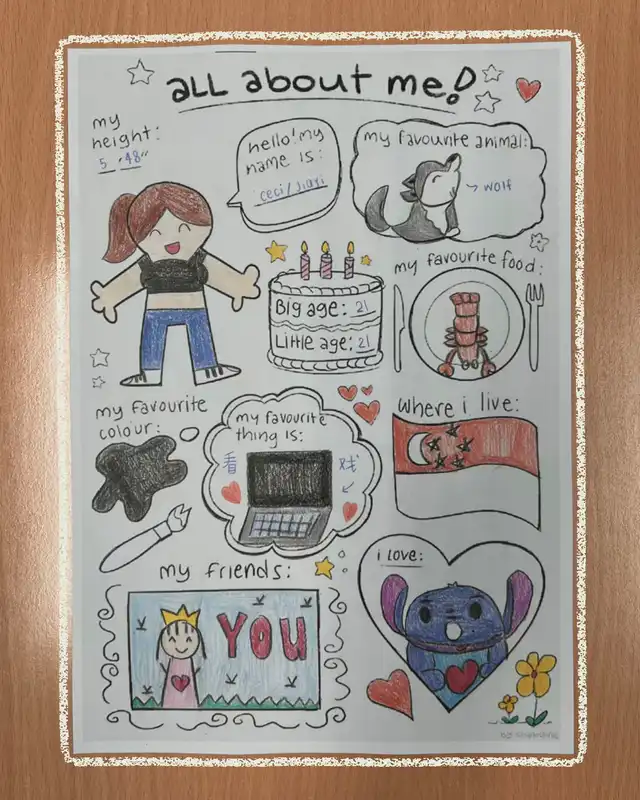 all about me!
my
height:
5 '48"
hello! my
name is:
ceci/jiayi
my favourite animal:
wolf
Big age: 21
Little age: 21
my favourite food:
my favourite
colour:
my favourite
thing is:
看 戏
where i live:
my friends:
YOU
i love:
by